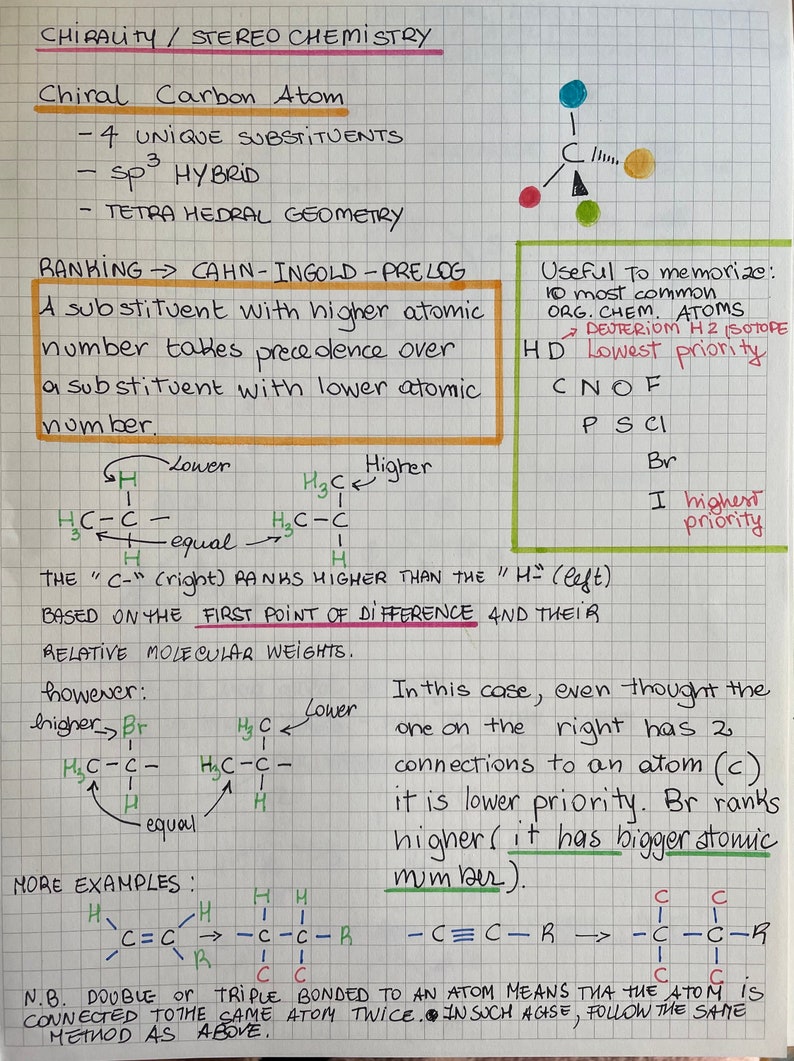 CHIRALITY / STEREO CHEMISTRY
Chiral Carbon Atom
- 4 UNIQUE SUBSTITUENTS
- sp³ HYBRID
- TETRA HEDRAL GEOMETRY
C
RANKING → CAHN-INGOLD-PRELOG
A substituent with higher atomic
number takes precedence over
a substituent with lower atomic
number.
Useful To memorize:
10 most common
ORG. CHEM. ATOMS
→ DEUTERIOM H2 ISOTOPE
H D Lowest priority
C N O F
P S Cl
Br
I highest
priority
Lower
H
H₃C - C -
H
equal
Higher
H₃C
H₃C - C
H
THE "C-" (right) RANKS HIGHER THAN THE "H-" (left)
BASED ON THE FIRST POINT OF DIFFERENCE AND THEIR
RELATIVE MOLECULAR WEIGHTS.
however:
higher → Br
H₃C - C -
H
equal
Lower
H₃C
H₃C - C -
H
In this case, even thought the
one on the right has 2
connections to an atom (C)
it is lower priority. Br ranks
higher (it has bigger atomic
number).
MORE EXAMPLES:
H H
C = C
R
→
H H
- C - C - R
C C
- C ≡ C - R →
C C
- C - C - R
C C
N.B. DOUBLE or TRIPLE BONDED TO AN ATOM MEANS THA THE ATOM IS
CONNECTED TO THE SAME ATOM TWICE. IN SUCH A CASE, FOLLOW THE SAME
METHOD AS ABOVE.